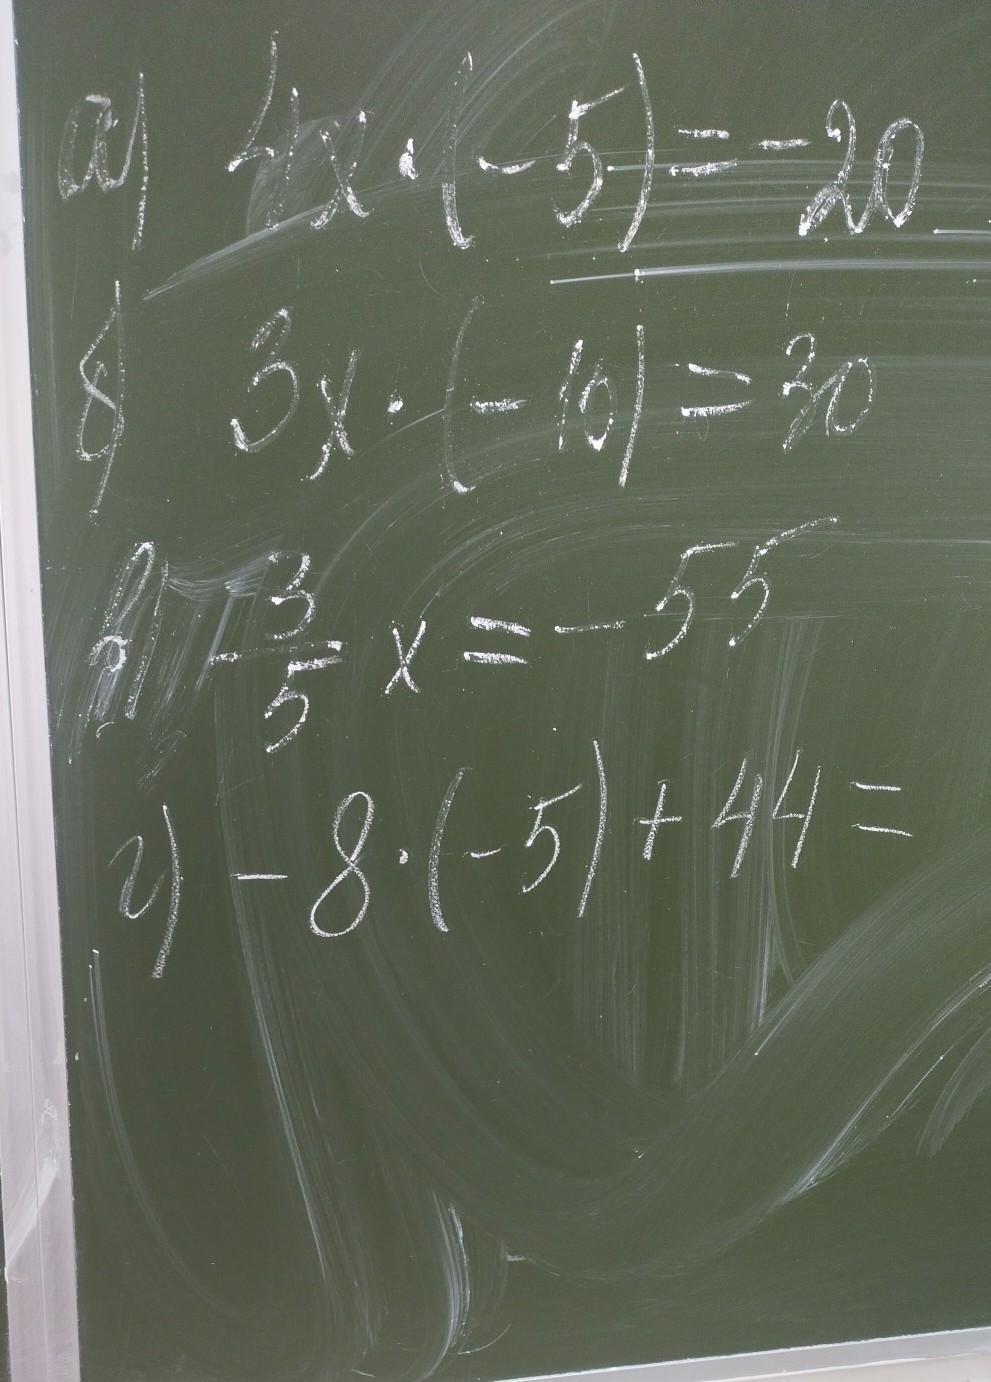 а) 4x · (-5) = -20
б) 3x · (-10) = 30
в) -3/5 x = -55
г) -8 · (-5) + 44 =